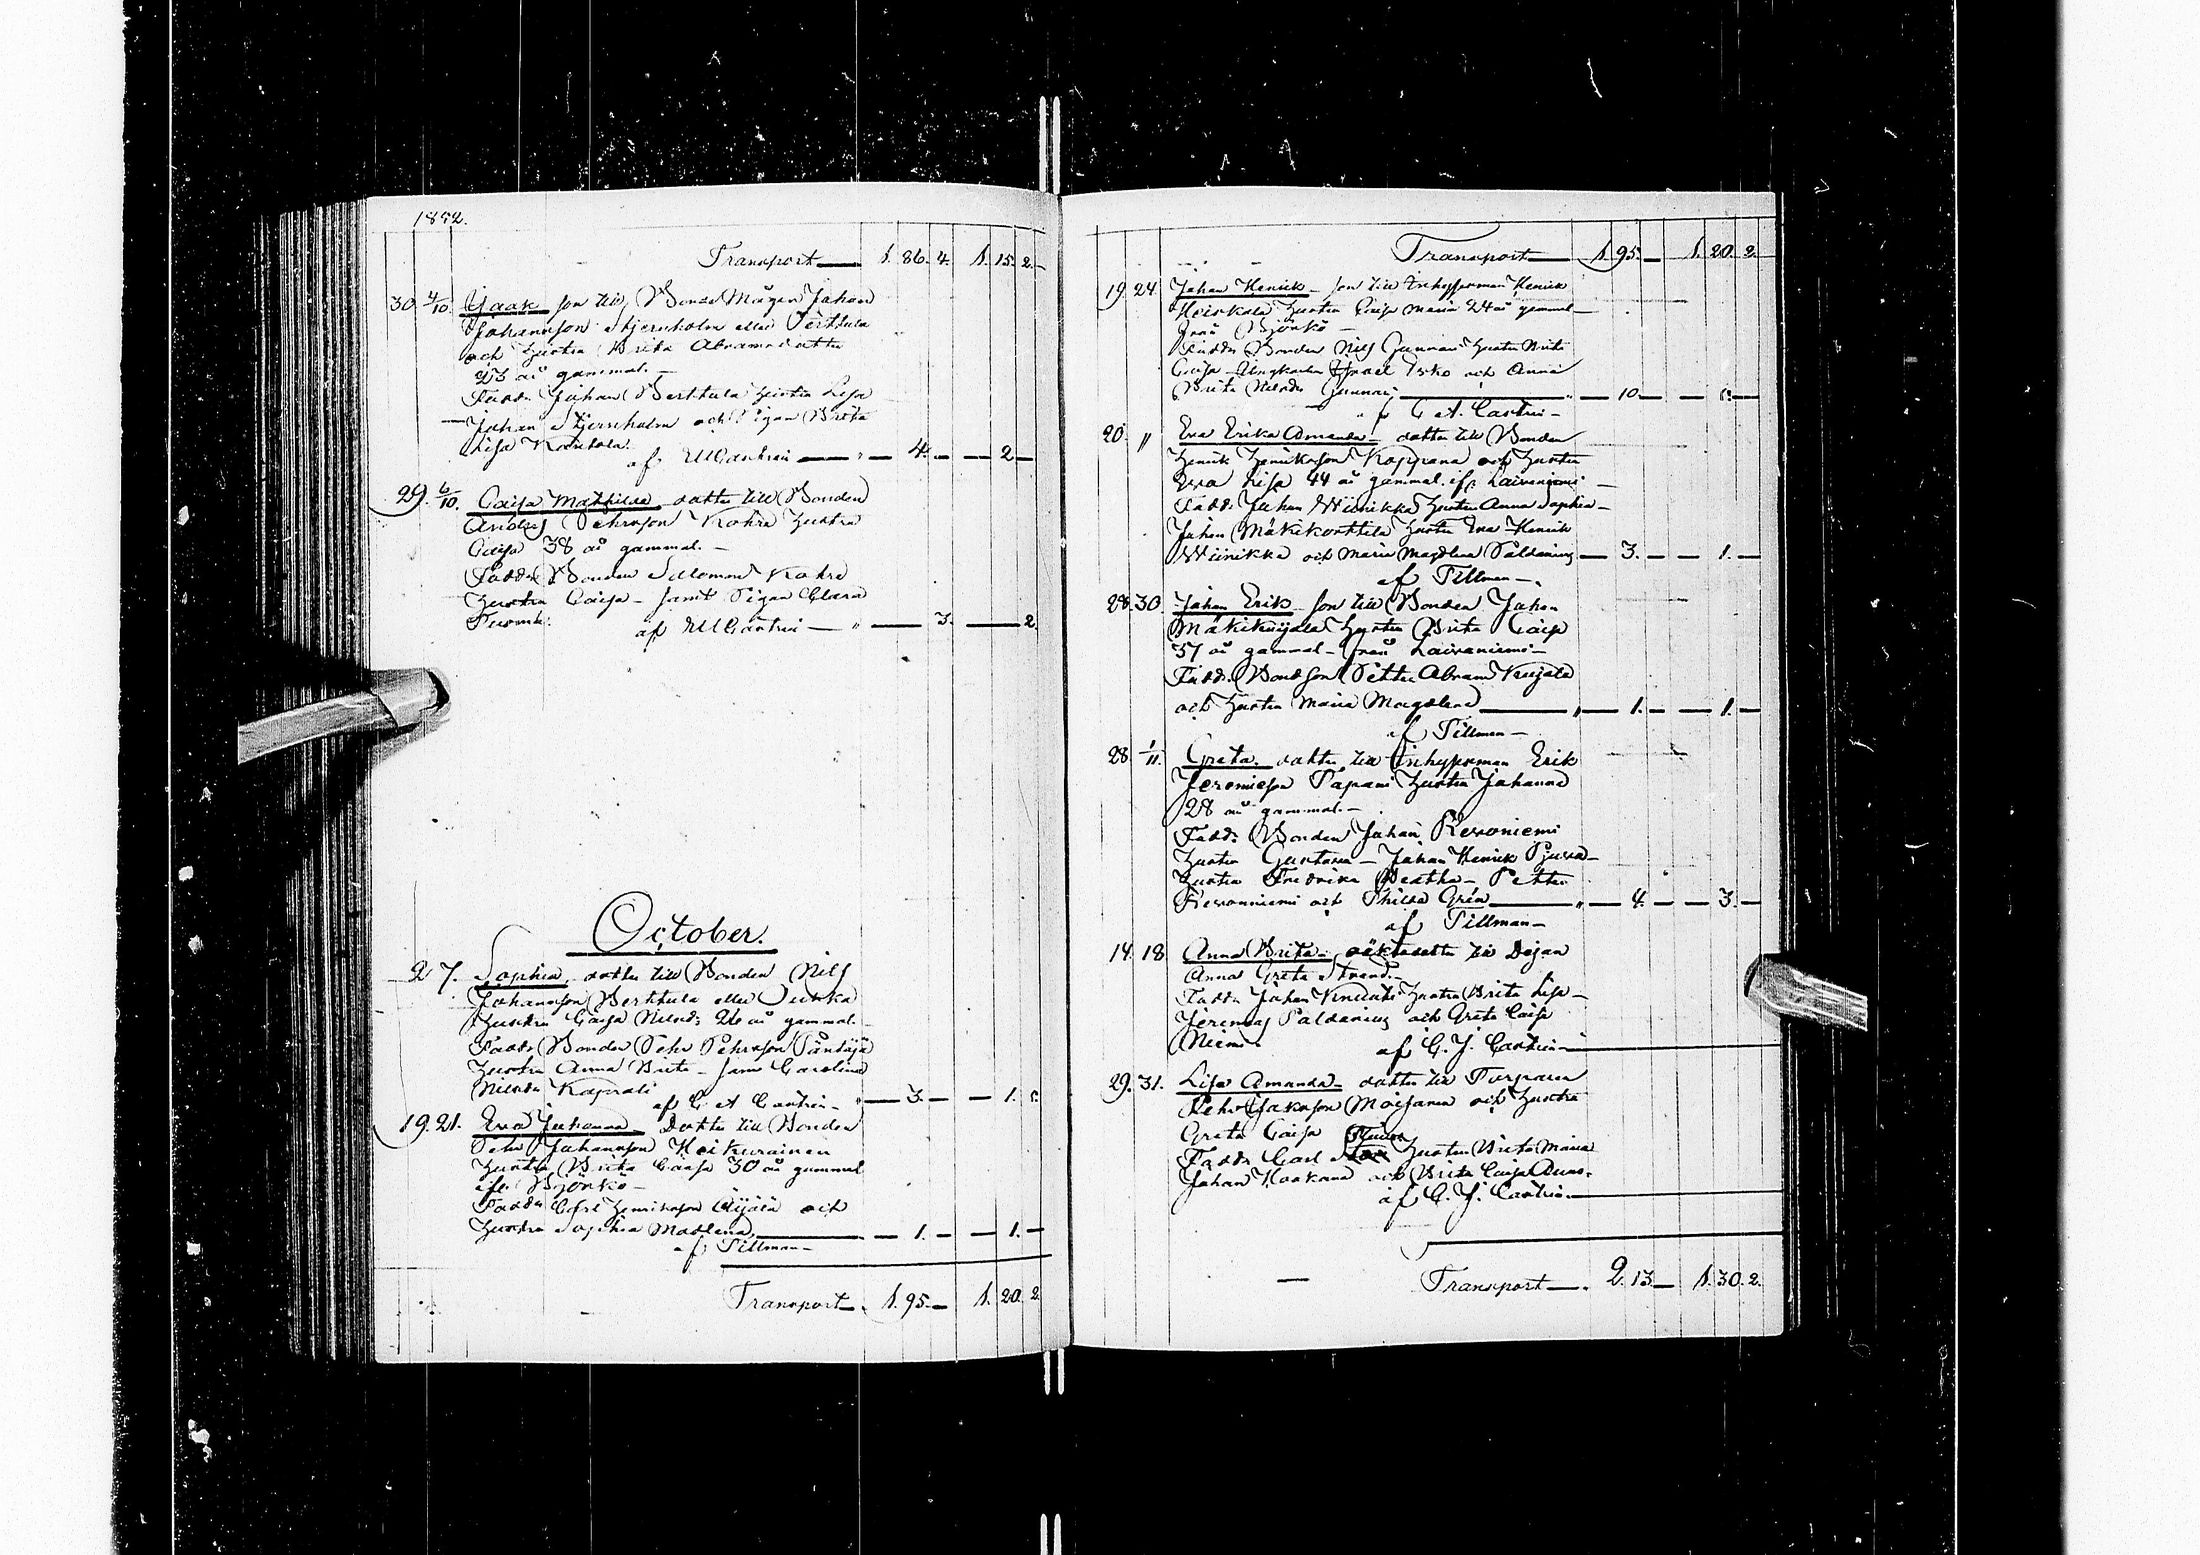 1852.
Transport — 1. 86. 4. 1. 15. 2.
30. 4/10. Isaak son till Bonde Mågen Johan
Johansson Stjernholm eller Perttula
och hustru Brita Abramsdotter
23 år gammal. —
Fadd: Johan Perttula hustru Lisa
— Johan Stjernholm och Pigan Brita
Lisa Karihola.
af EM Castrén — " — 4. — — 2 —
29. 6/10. Caisa Mathilda dotter till Bonden
Anders Pehrsson Kohre hustru
Caisa 38 år gammal. —
Fadd: Bonden Salomon Kohre
hustru Caisa — samt Pigan Clara
af EM Castrén — " — 3. — 2.
October.
2 7. Sophia, dotter till Bonden Nils
Johansson Perttula eller
hustru Caisa Nilsd: 26 år gammal.
Fadd: Bonden Pehr Pehrsson
hustru Anna Brita — samt Carolina
Nilsdr Kaprali
af C A Castrén — " — 3. — — 1. "
19. 21. Eva Johanna Dotter till Bonden
Pehr Johansson Heikurainen
hustru Brita Caisa 30 år gammal
ifr. Björkö —
Fadd: Carl Henriksson Äijälä och
hustru Sophia Madlena — — 1. — — 1. —
af Tillman —
Transport — 1. 95. — 1. 20. 2.
Transport — 1. 95. — 1. 20. 2.
19. 24. Johan Henrik — son till Inhysesman Henrik
Heiskala hustru Caisa Maria 24 år gammal —
från Björkö —
Fadd: Bonden Nils Gunnari hustru Brita
Caisa — Ungkarlen Israel Isko och Anna
Brita Nilsdr Gunnari — " — 10. — —
af C A. Castrén —
20. " Eva Erika Amanda — dotter till Bonden
Henrik Henriksson Kappana och hustru
Eva Lisa 44 år gammal. ifr. Laivaniemi —
Fadd: Johan Wiinikka hustru Anna Sophia —
Johan Mäkikorttila hustru Eva — Henrik
Wiinikka och Maria Magdlena Paldanius — 3. — — 1. —
af Tillman —.
28. 30. Johan Erik — son till Bonden Johan
Mäkikuijala hustru Brita Caisa
37 år gammal — från Laivaniemi —
Fadd: Bondson Petter Abram Kuijala
och hustru Maria Magdlena — " — 1. — — 1. —
af Tillman —
28. 1/11. Greta. dotter till Inhysesman Erik
Jeremiesson Papani hustru Johanna
28 år gammal. —
Fadd: Bonden Johan Keroniemi
hustru Gustava — Johan Henrik
hustru Fredrika Beatha — Petter
Keroniemi och Thilda Grön — " — 4. — — 3. —
af Tillman —
14. 18. Anna Brita — oäkta dotter till Pigan
Anna Greta Strand. —
Fadd: Johan hustru Brita Lisa —
Jeremias Paldanius och Greta Caisa
Niemi.
af C. J. Castrén —
29. 31. Lisa Amanda — dotter till Torparen
Pehr Isaksson Moisanen och hustru
Greta Caisa
Fadd: Carl hustru Brita Maria
Johan Kaakana och Brita Caisa
af C. J. Castrén —
Transport — 2. 13 — 1. 30. 2.